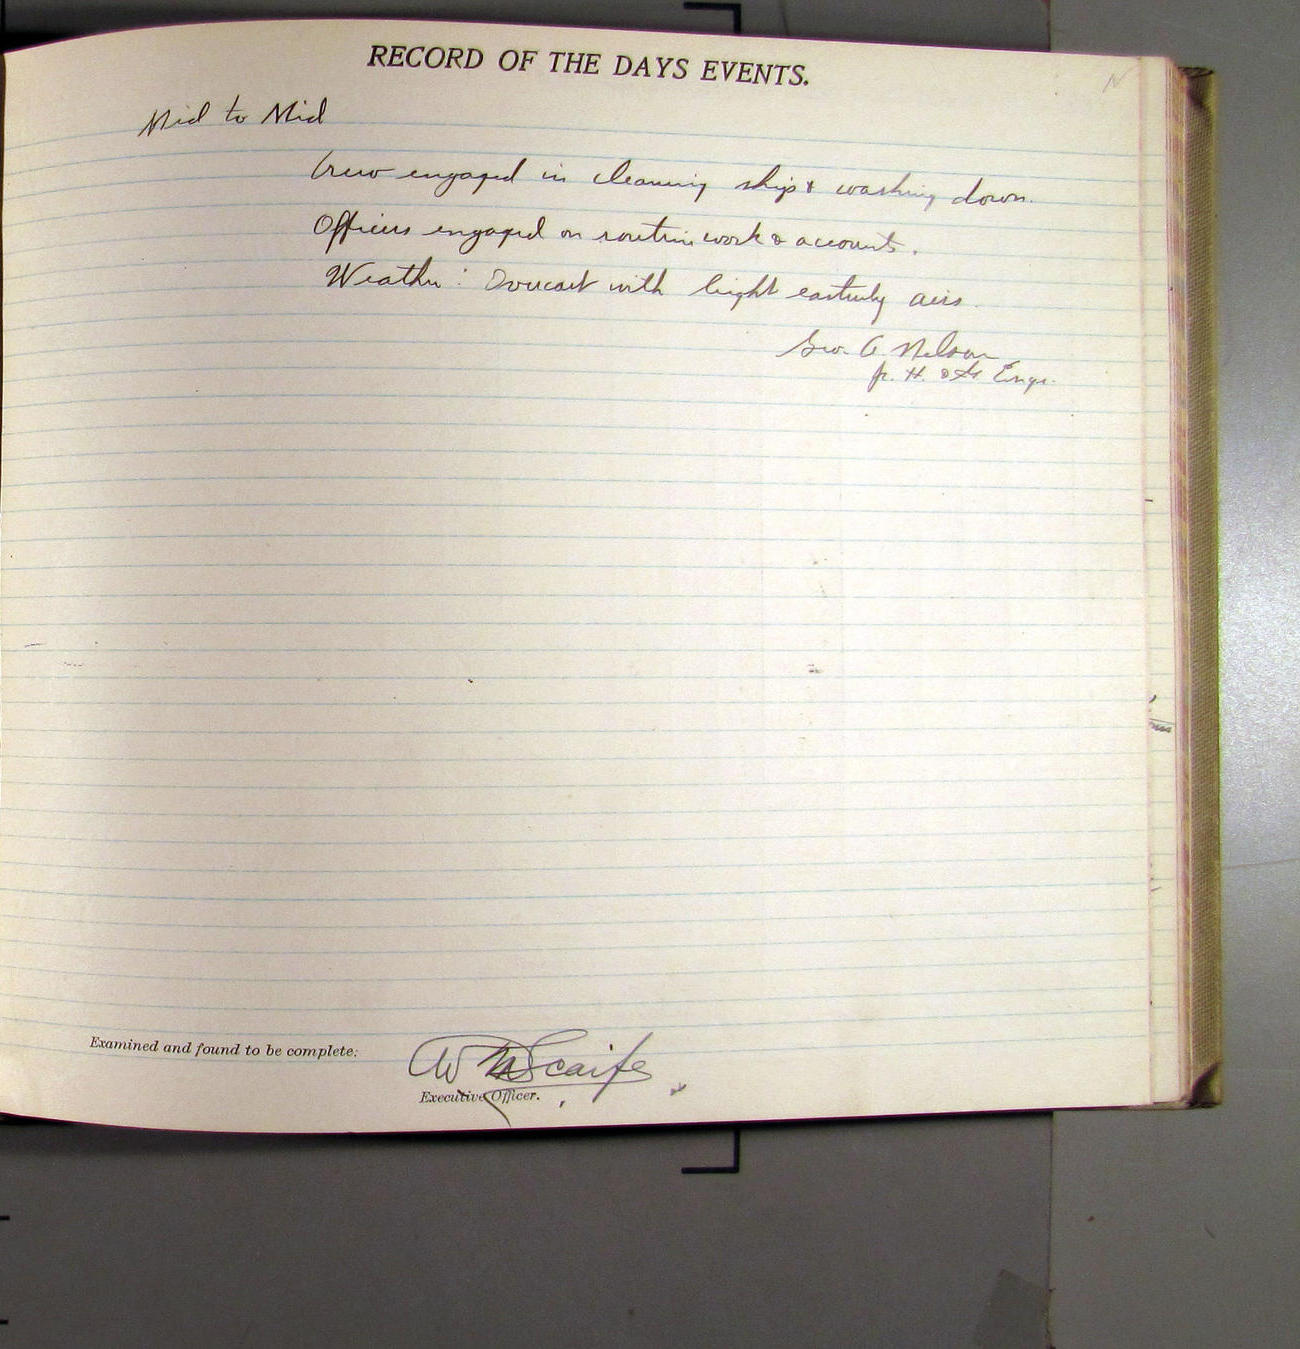 RECORD OF THE DAYS EVENTS.
Mid to Mid
Crew engaged in cleaning ship & washing down.
Officers engaged on routine work & accounts.
Weather: Overcast with light easterly airs.
Geo. A. Nelson
jr. H. & G. Engr.
Examined and found to be complete:
W M Scaife
Executive Officer.